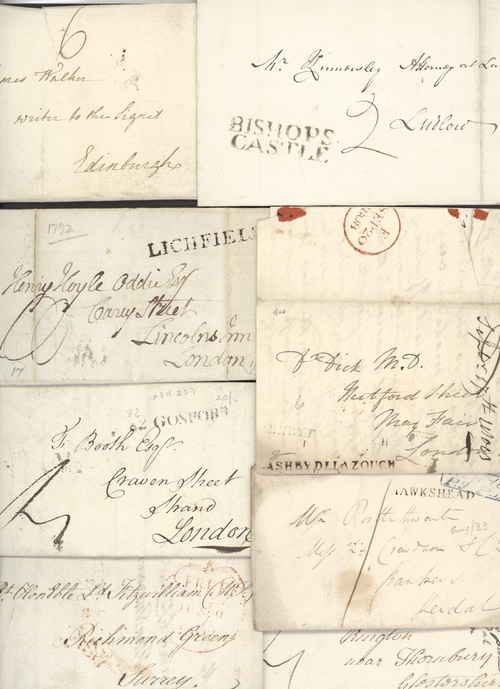 6
James Walker
writer to the Signet
Edinburgh
Mr. Kinnersley Attorney at Law
BISHOPS
CASTLE
2 Ludlow
1792
LICHFIEL
Henry Hoyle Oddie Esqr
Carey Street
Lincolns Inn
London
17
SEP 20
808
Dr. Dick M.D.
6
Mitford Street
May Fair
London
ASHBY DE LA ZOUCH
62 GOSPORT
F. Booth Esqr
Craven Street
Strand
London
HAWKSHEAD
aug/23
Crewdson & Co
Bankers
Kendal
Rt. Honble Ld. Fitzwilliam
Richmond Green
Surrey
near Thornbury
Glostershire